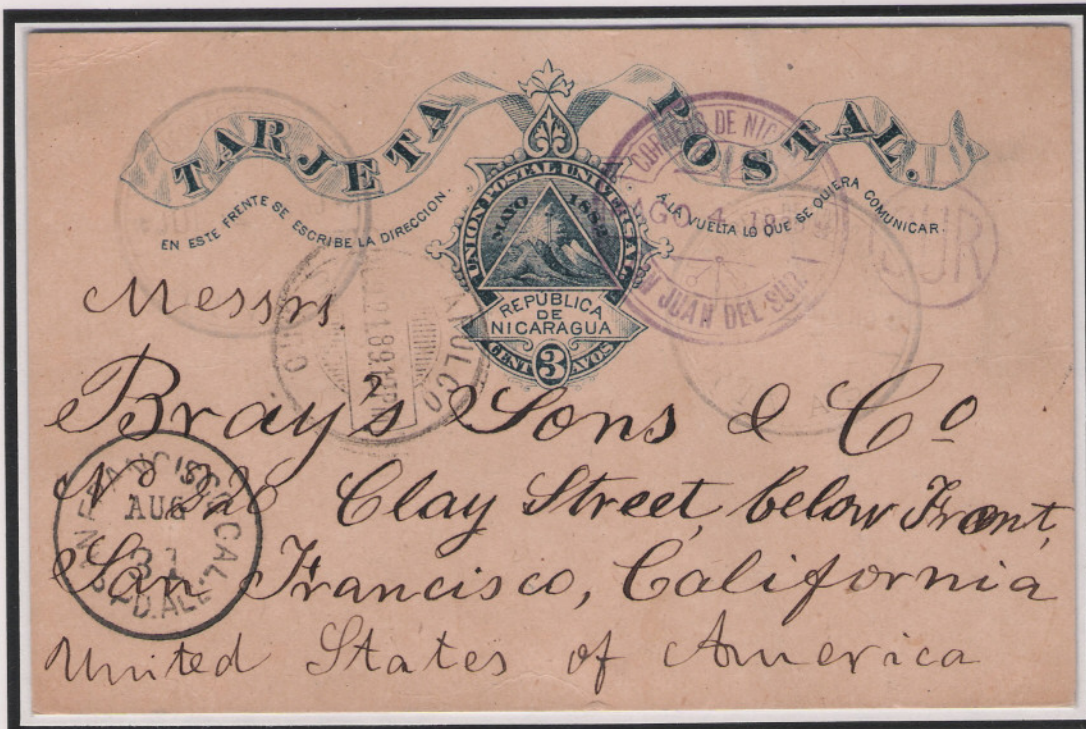 TARJETA POSTAL.
EN ESTE FRENTE SE ESCRIBE LA DIRECCION.
Á LA VUELTA LO QUE SE QUIERA COMUNICAR.
UNION POSTAL UNIVERSAL
MAYO 1882
REPÚBLICA
DE
NICARAGUA
CENTAVOS
3
CORREOS DE NIC
AGO 4 18
JUAN DEL SUR
Messrs.
Bray's Sons & Co
No 226 Clay Street, below Front,
San Francisco, California
United States of America
SAN FRANCISCO, CAL.
AUG
31
PD. ALL.